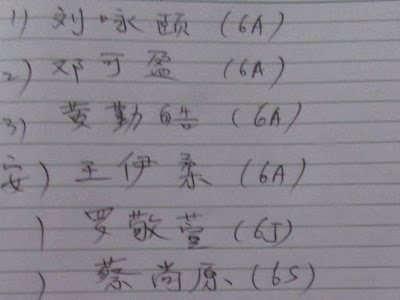 1) 刘咏颐 (6A)
2) 邓可盈 (6A)
3) 黄勤皓 (6A)
安) 王伊柔 (6A)
) 罗敬萱 (6J)
) 蔡尚原 (6S)